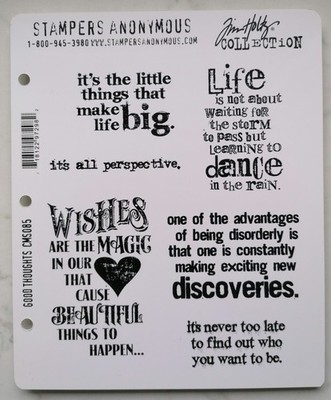 STAMPERS ANONYMOUS
1-800-945-3980 WWW.STAMPERSANONYMOUS.COM
Tim Holtz
COLLECTION
it's the little
things that
make big.
life
it's all perspective.
Life
is not about
waiting for
the storm
to pass but
learning to
dance
in the rain.
WISHES
ARE THE MAGIC
IN OUR
THAT
CAUSE
BEAUTIFUL
THINGS TO
HAPPEN...
one of the advantages
of being disorderly is
that one is constantly
making exciting new
discoveries.
it's never too late
to find out who
you want to be.
GOOD THOUGHTS CMS085